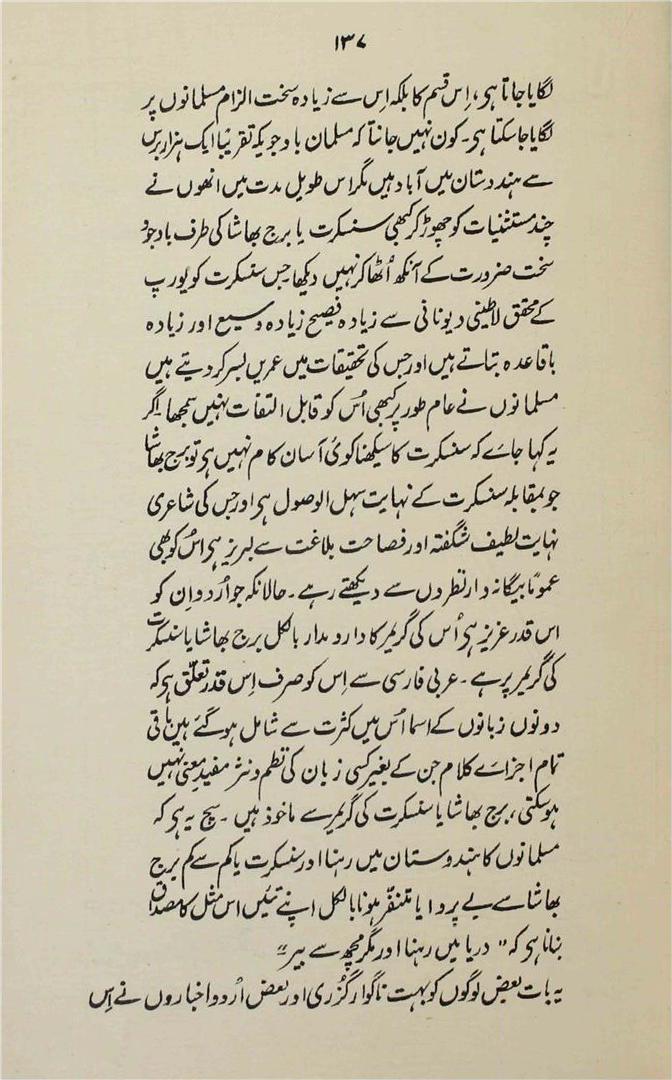 ۱۳۷
لگایا جاتا ہی، اِس قسم کا بلکہ اِس سے زیادہ سخت الزام مسلمانوں پر
لگایا جا سکتا ہی۔ کون نہیں جانتا کہ مسلمان باوجودیکہ تقریبًا ایک ہزار برس
سے ہندوستان میں آباد ہیں مگر اس طویل مدت میں انھوں نے
چند مستثنیات کو چھوڑ کر کبھی سنسکرت یا برج بھاشا کی طرف باوجود
سخت ضرورت کے آنکھ اُٹھا کر نہیں دیکھا جس سنسکرت کو یورپ
کے محقق لاطینی و یونانی سے زیادہ فصیح زیادہ وسیع اور زیادہ
باقاعدہ بتاتے ہیں اور جس کی تحقیقات میں عمریں بسر کر دیتے ہیں
مسلمانوں نے عام طور پر کبھی اُس کو قابل التفات نہیں سمجھا۔ اگر
یہ کہا جائے کہ سنسکرت کا سیکھنا کوئی آسان کام نہیں ہی تو برج بھاشا
جو بمقابلہ سنسکرت کے نہایت سہل الوصول ہی اور جس کی شاعری
نہایت لطیف شگفتہ اور فصاحت بلاغت سے لبریز ہی اُس کو بھی
عمومًا بیگانہ وار نظروں سے دیکھتے رہے۔ حالانکہ جو اُردو اِن کو
اس قدر عزیز ہی اُس کی گریمر کا دارومدار بالکل برج بھاشا یا سنسکرت
کی گریمر پر ہے۔ عربی فارسی سے اِس کو صرف اِس قدر تعلّق ہو کہ
دونوں زبانوں کے اسما اُس میں کثرت سے شامل ہو گئے ہیں باقی
تمام اجزائے کلام جن کے بغیر کسی زبان کی نظم و نثر مفید معنی نہیں
ہو سکتی، برج بھاشا یا سنسکرت کی گریمر سے ماخوذ ہیں۔ سچ یہ ہی کہ
مسلمانوں کا ہندوستان میں رہنا اور سنسکرت یا کم سے کم برج
بھاشا سے بے پروا یا متنفّر ہونا بالکل اپنے تئیں اس مثل کا مصداق
بنانا ہی کہ " دریا میں رہنا اور مگر مچھ سے بیر "
یہ بات بعض لوگوں کو بہت ناگوار گزُری اور بعض اُردو اخباروں نے اِس